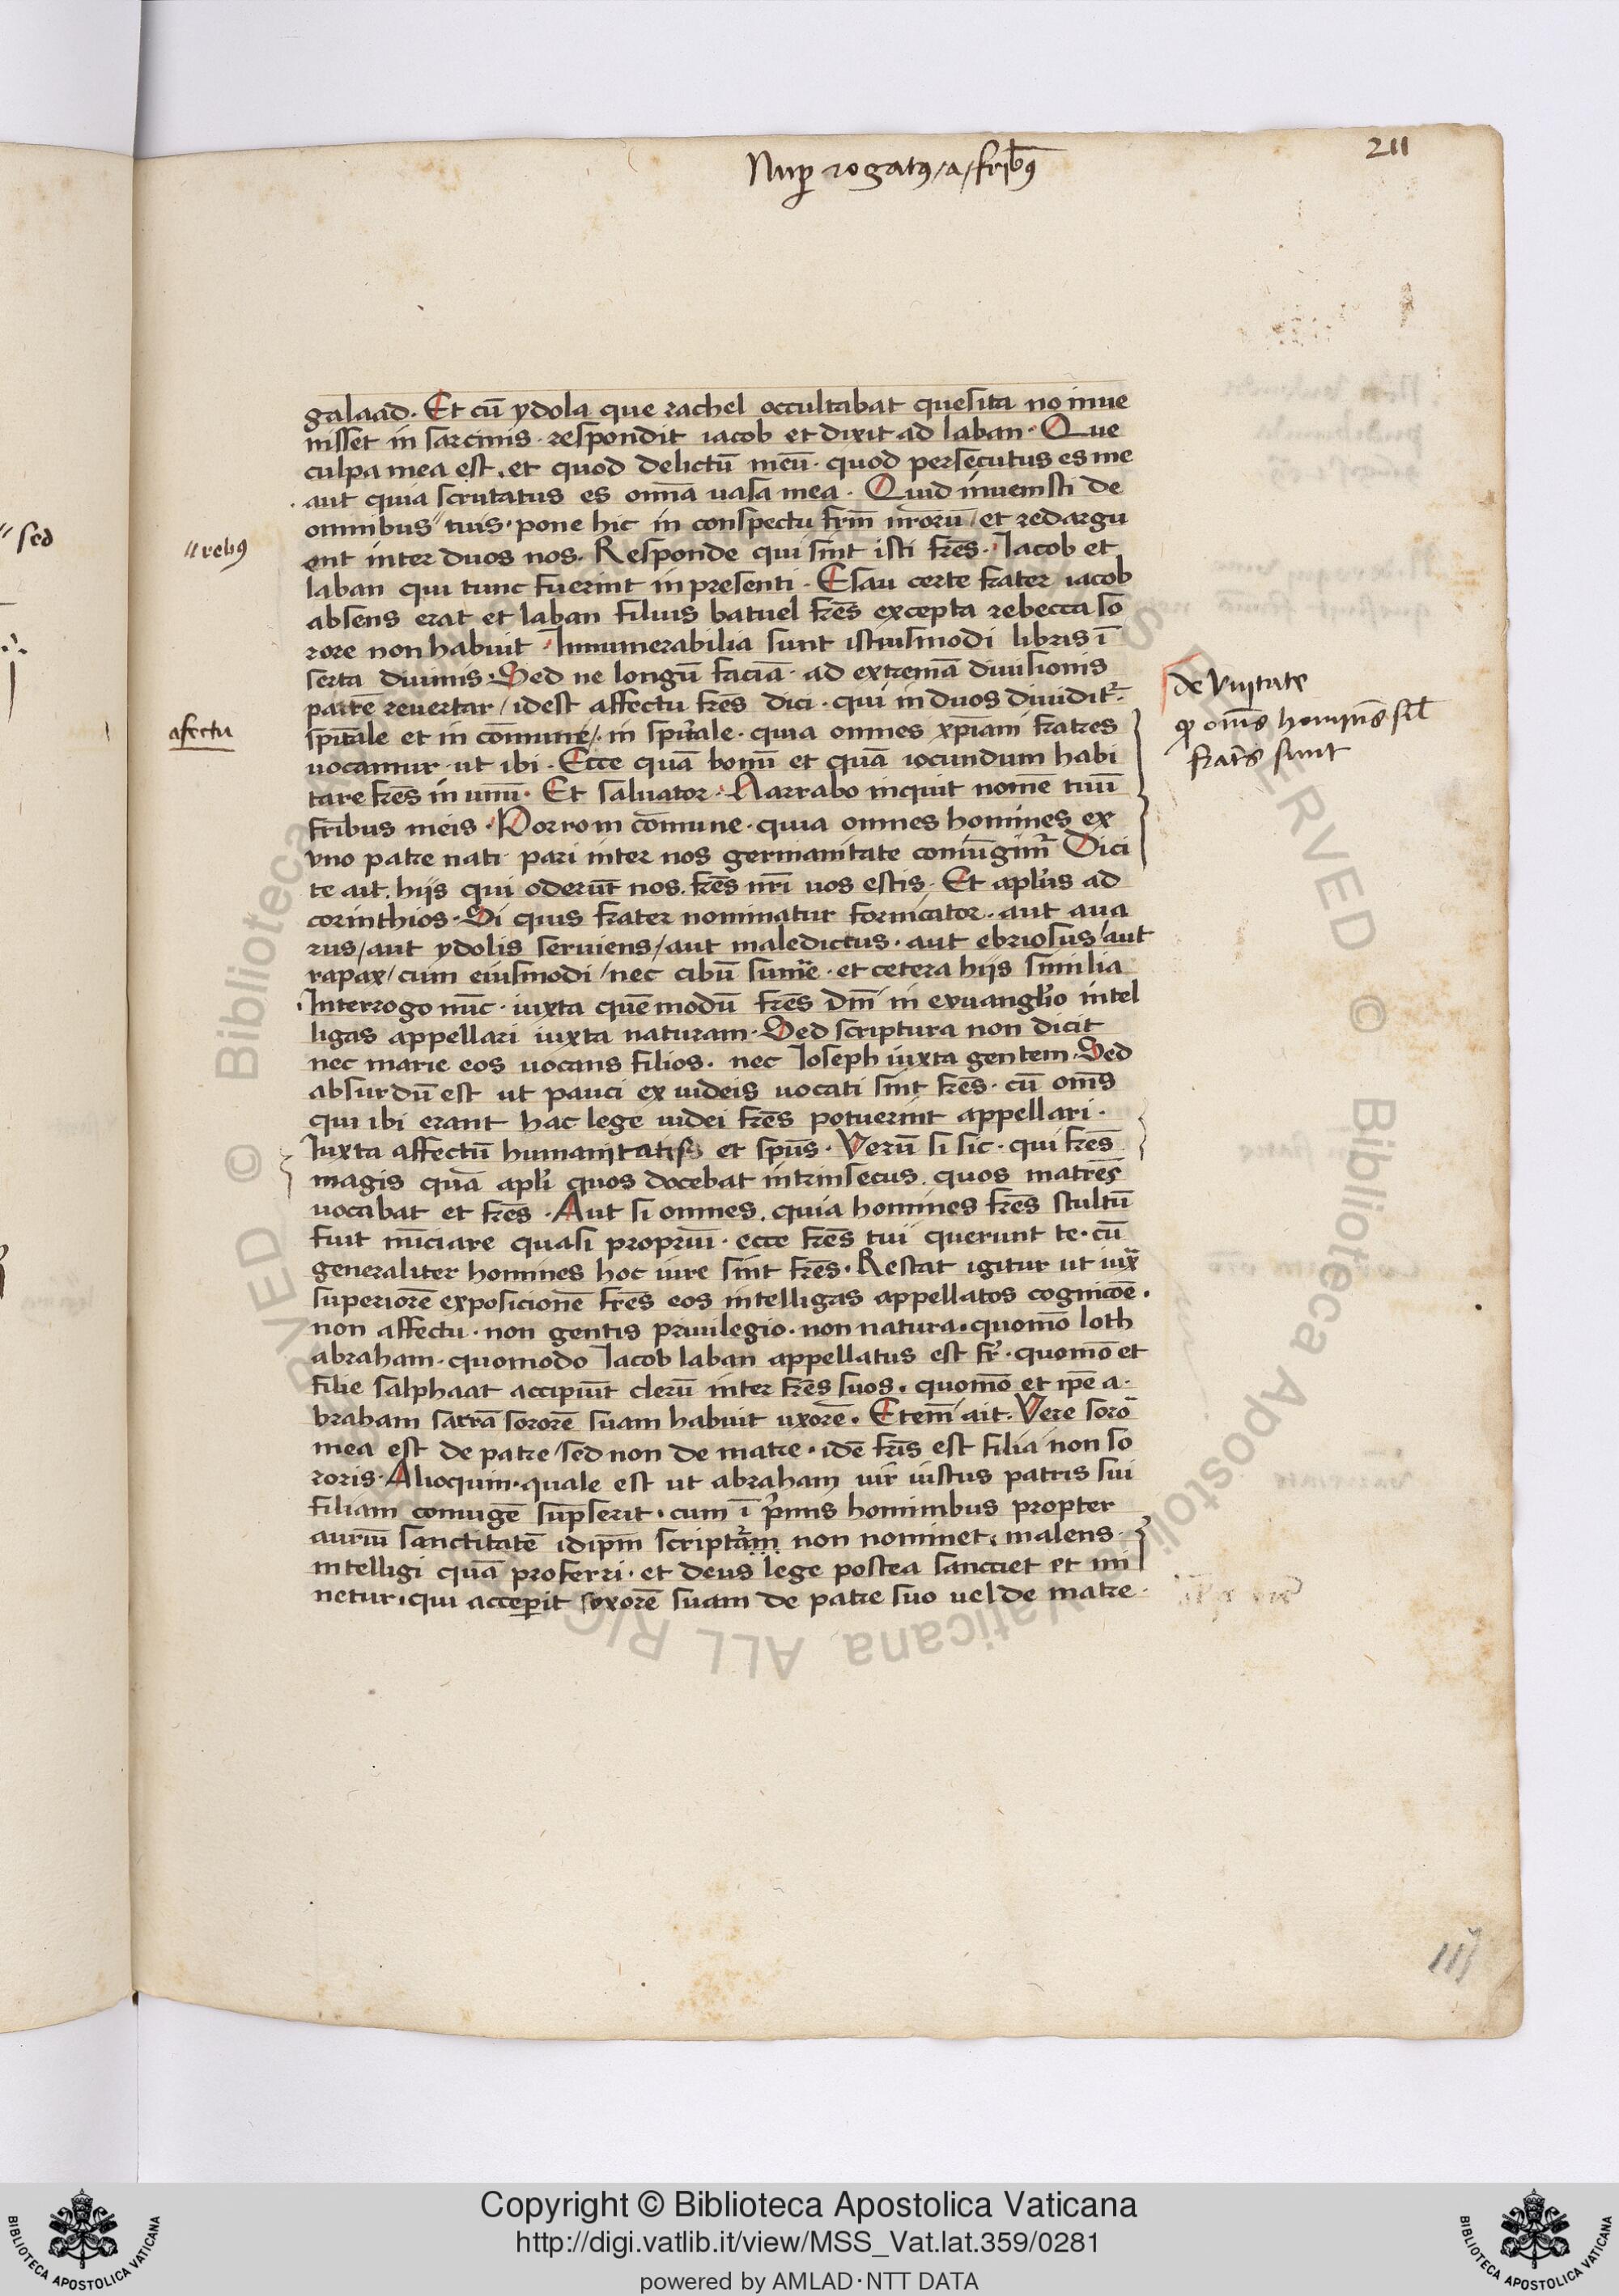 Nup rogatꝰ/a/fribꝫ
211
galaad. Et cū ydola que rachel occultabat quesita no inue
nisset in sarcinis. respondit iacob et dixit ad laban. Que
culpa mea est. et quod delictū meū. quod persecutus es me
aut quia scrutatus es omīa uasa mea. Quid inuenisti de
omnibus tuis. pone hic in conspectu frm̄ nr̄orū/et redargu
ent inter duos nos. Responde qui sint isti fres̄. Iacob et
laban qui tunc fuerint in presenti. Esau certe frater iacob
absens erat et laban filius batuel fres̄ excepta rebecca so
rore non habuit. Innumerabilia sunt istiusmodi libris ī
serta diuinis. Sed ne longū faciā. ad extremā diuisionis
partē reuertar/idest affectu fres̄ dici. qui in duos diuidit᷑.
spūale et in cōmune/. in spūale. quia omnes xp̄iani fratres
uocamur. ut ibi. Ecce quā bonū et quā iocundum habi
tare fres̄ in unū. Et saluator. Narrabo inquit nomē tuū
fribus meis. Porro in cōmune. quia omnes homines ex
vno patre nati pari inter nos germanitate coniūgim᷑ Dici
te ait. hijs qui oderūt nos. fres̄ nr̄i uos estis. Et apl̄us ad
corinthios. Si quis frater nominatur fornicator. aut aua
rus/aut ydolis seruiens/aut maledictus. aut ebriosus/aut
rapax/cum eiusmodi/nec cibū sum̄e. et cetera hijs similia
Interrogo nūc. iuxta quē modū fres̄ dn̄i in ewangl̄io intel
ligas appellari iuxta naturam. Sed scriptura non dicit
nec marie eos uocans filios. nec Ioseph iuxta gentem. Sed
absurdū est ut pauci ex iudeis uocati sint fres̄. cū om̄s
qui ibi erant hac lege iudei fres̄ potuerint appellari.
Iuxta affectū humanitatis et sp̄us. Verū si sic. qui fres̄
magis quā apl̄i quos docebat intrinsecus. quos matres̄
uocabat et fres̄. Aut si omnes. quia homines fres̄ stultū
fuit nūciare quasi propriū. ecce fres̄ tui querunt te. cū
generaliter homines hoc iure sint fres̄. Restat igitur ut iux̄
superiorē exposicionē fres̄ eos intelligas appellatos cognicōe.
non affectu. non gentis priuilegio. non natura. quomō loth
abraham. quomodo Iacob laban appellatus est fr̄. quomō et
filie salphaat accipiūt clerū inter fres̄ suos. quomō et ip̄e a.
braham sarrā sororē suam habuit uxorē. Etem̄ ait. Vere sorō
mea est de patre/sed non de matre. idē fris̄ est filia/non so
roris. Alioquin. quale est ut abraham uir iustus patris sui
filiam coniugē sūpserit. cum ī p̄mis hominibus propter
auriū sanctitatē idip̄m script᷑am non nominet. malens
intelligi quā proferri. et deus lege postea sancciet et mi
netur. qui acceperit uxorē suam de patre suo uel de matre.
//rebꝰ
afectu
de vnitate
ꝙ om̄s homīnes sil̄
fratrs̄ sunt
//sed
iij
Copyright © Biblioteca Apostolica Vaticana
http://digi.vatlib.it/view/MSS_Vat.lat.359/0281
powered by AMLAD·NTT DATA
BIBLIOTECA APOSTOLICA VATICANA
BIBLIOTECA APOSTOLICA VATICANA